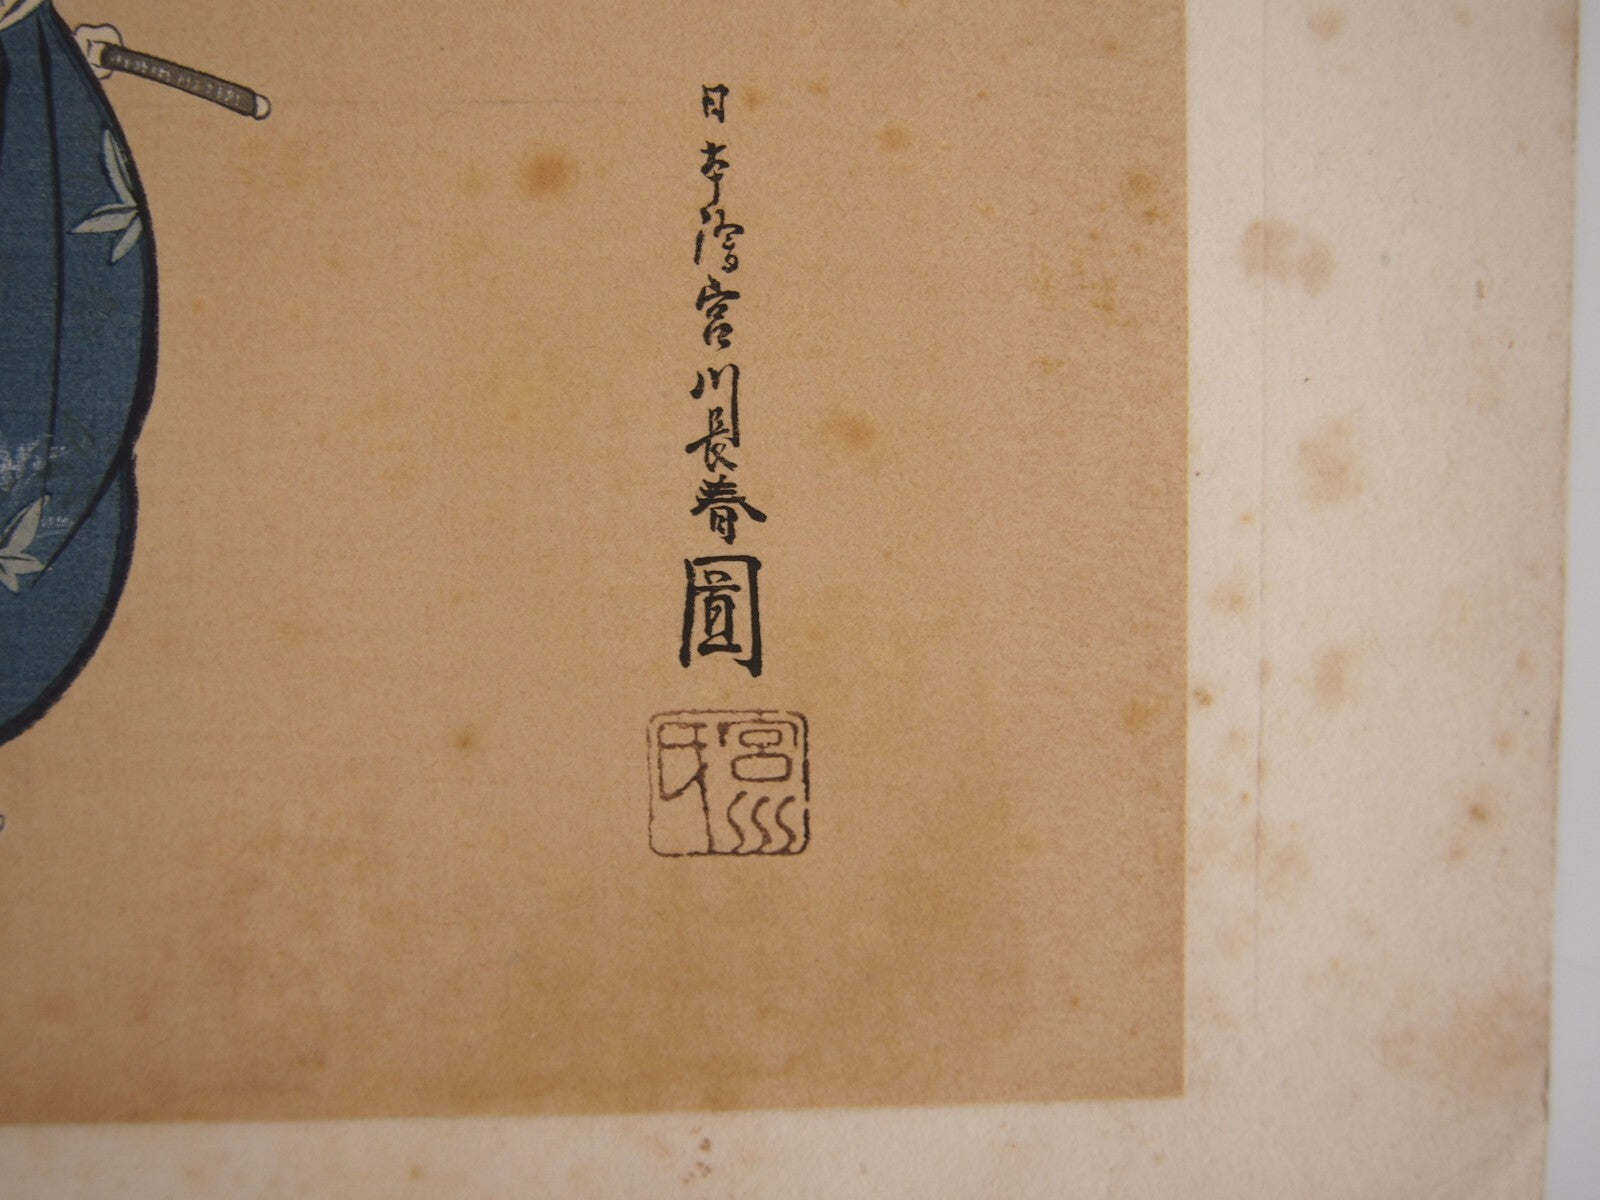 日本繪宮川長春圖
宮川氏